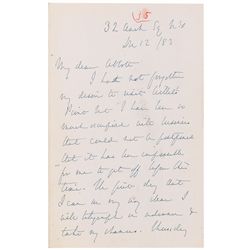 32
12/83
My dear Abbott
I had not forgotten
my desire to visit
but I have been so
much occupied with business
that could not be postponed
that it has been impossible
for me to get off before this
time. The first day that
I can see my way clear I
will telegraph in advance &
take my chances. Thursday